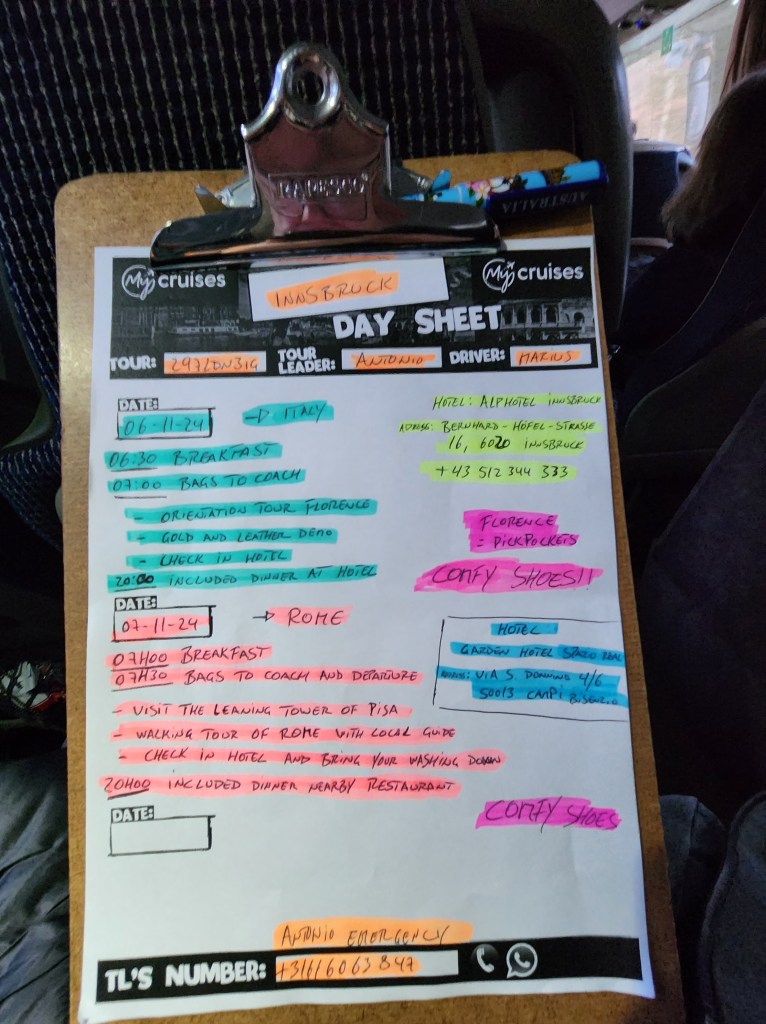 RAPESCO
AUSTRALIA
My cruises
INNSBRUCK
My cruises
DAY SHEET
TOUR: 297LDN31G TOUR LEADER: ANTONIO DRIVER: MARIUS
DATE:
06-11-24 → ITALY
06:30 BREAKFAST
07:00 BAGS TO COACH
- ORIENTATION TOUR FLORENCE
- GOLD AND LEATHER DEMO
- CHECK IN HOTEL
20:00 INCLUDED DINNER AT HOTEL
HOTEL: ALPHOTEL INNSBRUCK
ADRESS: BERNHARD-HÖFEL-STRASSE
16, 6020 INNSBRUCK
+43 512 344 333
FLORENCE
= PICKPOCKETS
COMFY SHOES!!
DATE:
07-11-24 → ROME
07H00 BREAKFAST
07H30 BAGS TO COACH AND DEPARTURE
- VISIT THE LEANING TOWER OF PISA
- WALKING TOUR OF ROME WITH LOCAL GUIDE
- CHECK IN HOTEL AND BRING YOUR WASHING DOWN
20H00 INCLUDED DINNER NEARBY RESTAURANT
HOTEL
GARDEN HOTEL
VIA S. DONNINO 4/6
50013 CAMPI BISENZIO
COMFY SHOES
DATE:
ANTONIO EMERGENCY
TL'S NUMBER: